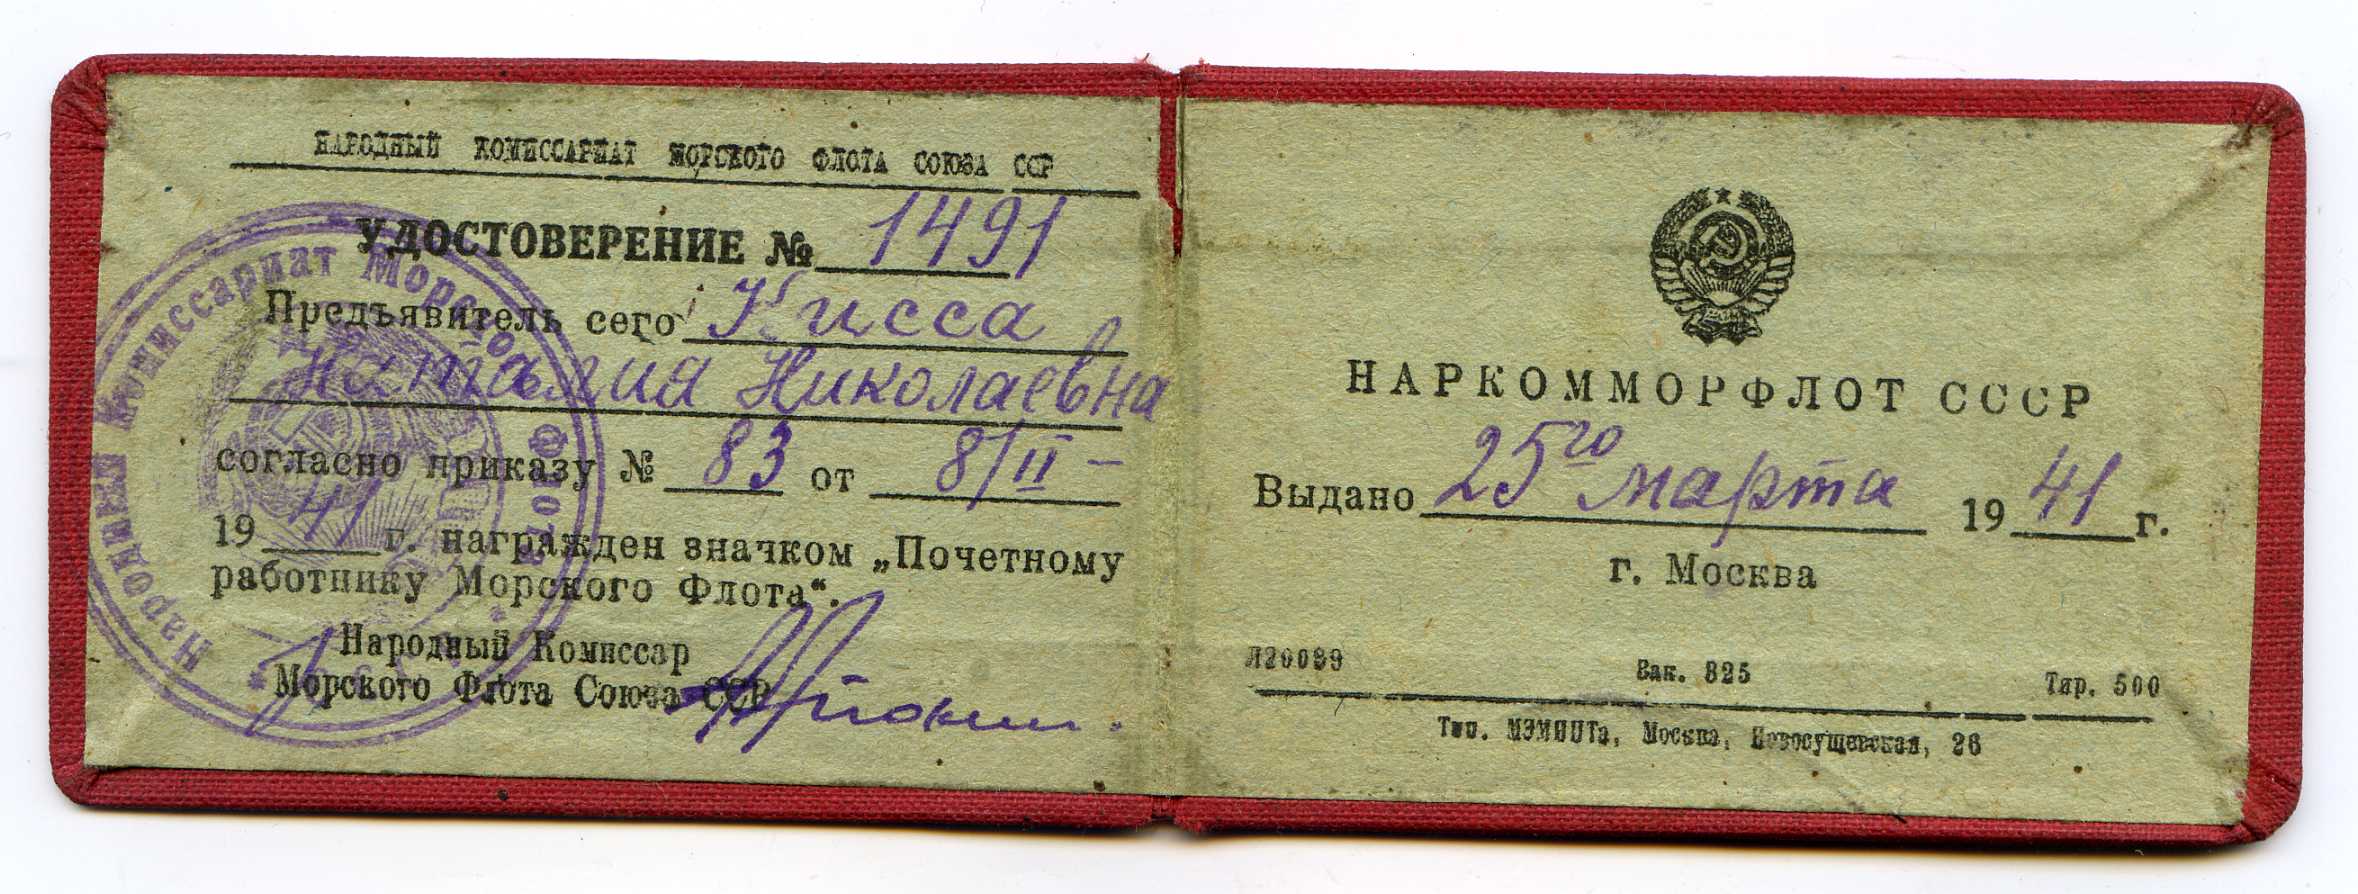 НАРОДНЫЙ КОМИССАРИАТ МОРСКОГО ФЛОТА СОЮЗА ССР
УДОСТОВЕРЕНИЕ № 1491
Предъявитель сего Кисса
Наталия Николаевна
согласно приказу № 83 от 8/II –
1941 г. награжден значком „Почетному
работнику Морского Флота“.
Народный Комиссар
Морского Флота Союза ССР
Народный Комиссариат Морского Флота
НАРКОММОРФЛОТ СССР
Выдано 25го марта 1941 г.
г. Москва
Л20089 Зак. 825 Тир. 500
Тип. МЭМИИТа, Москва, Новосущевская, 26